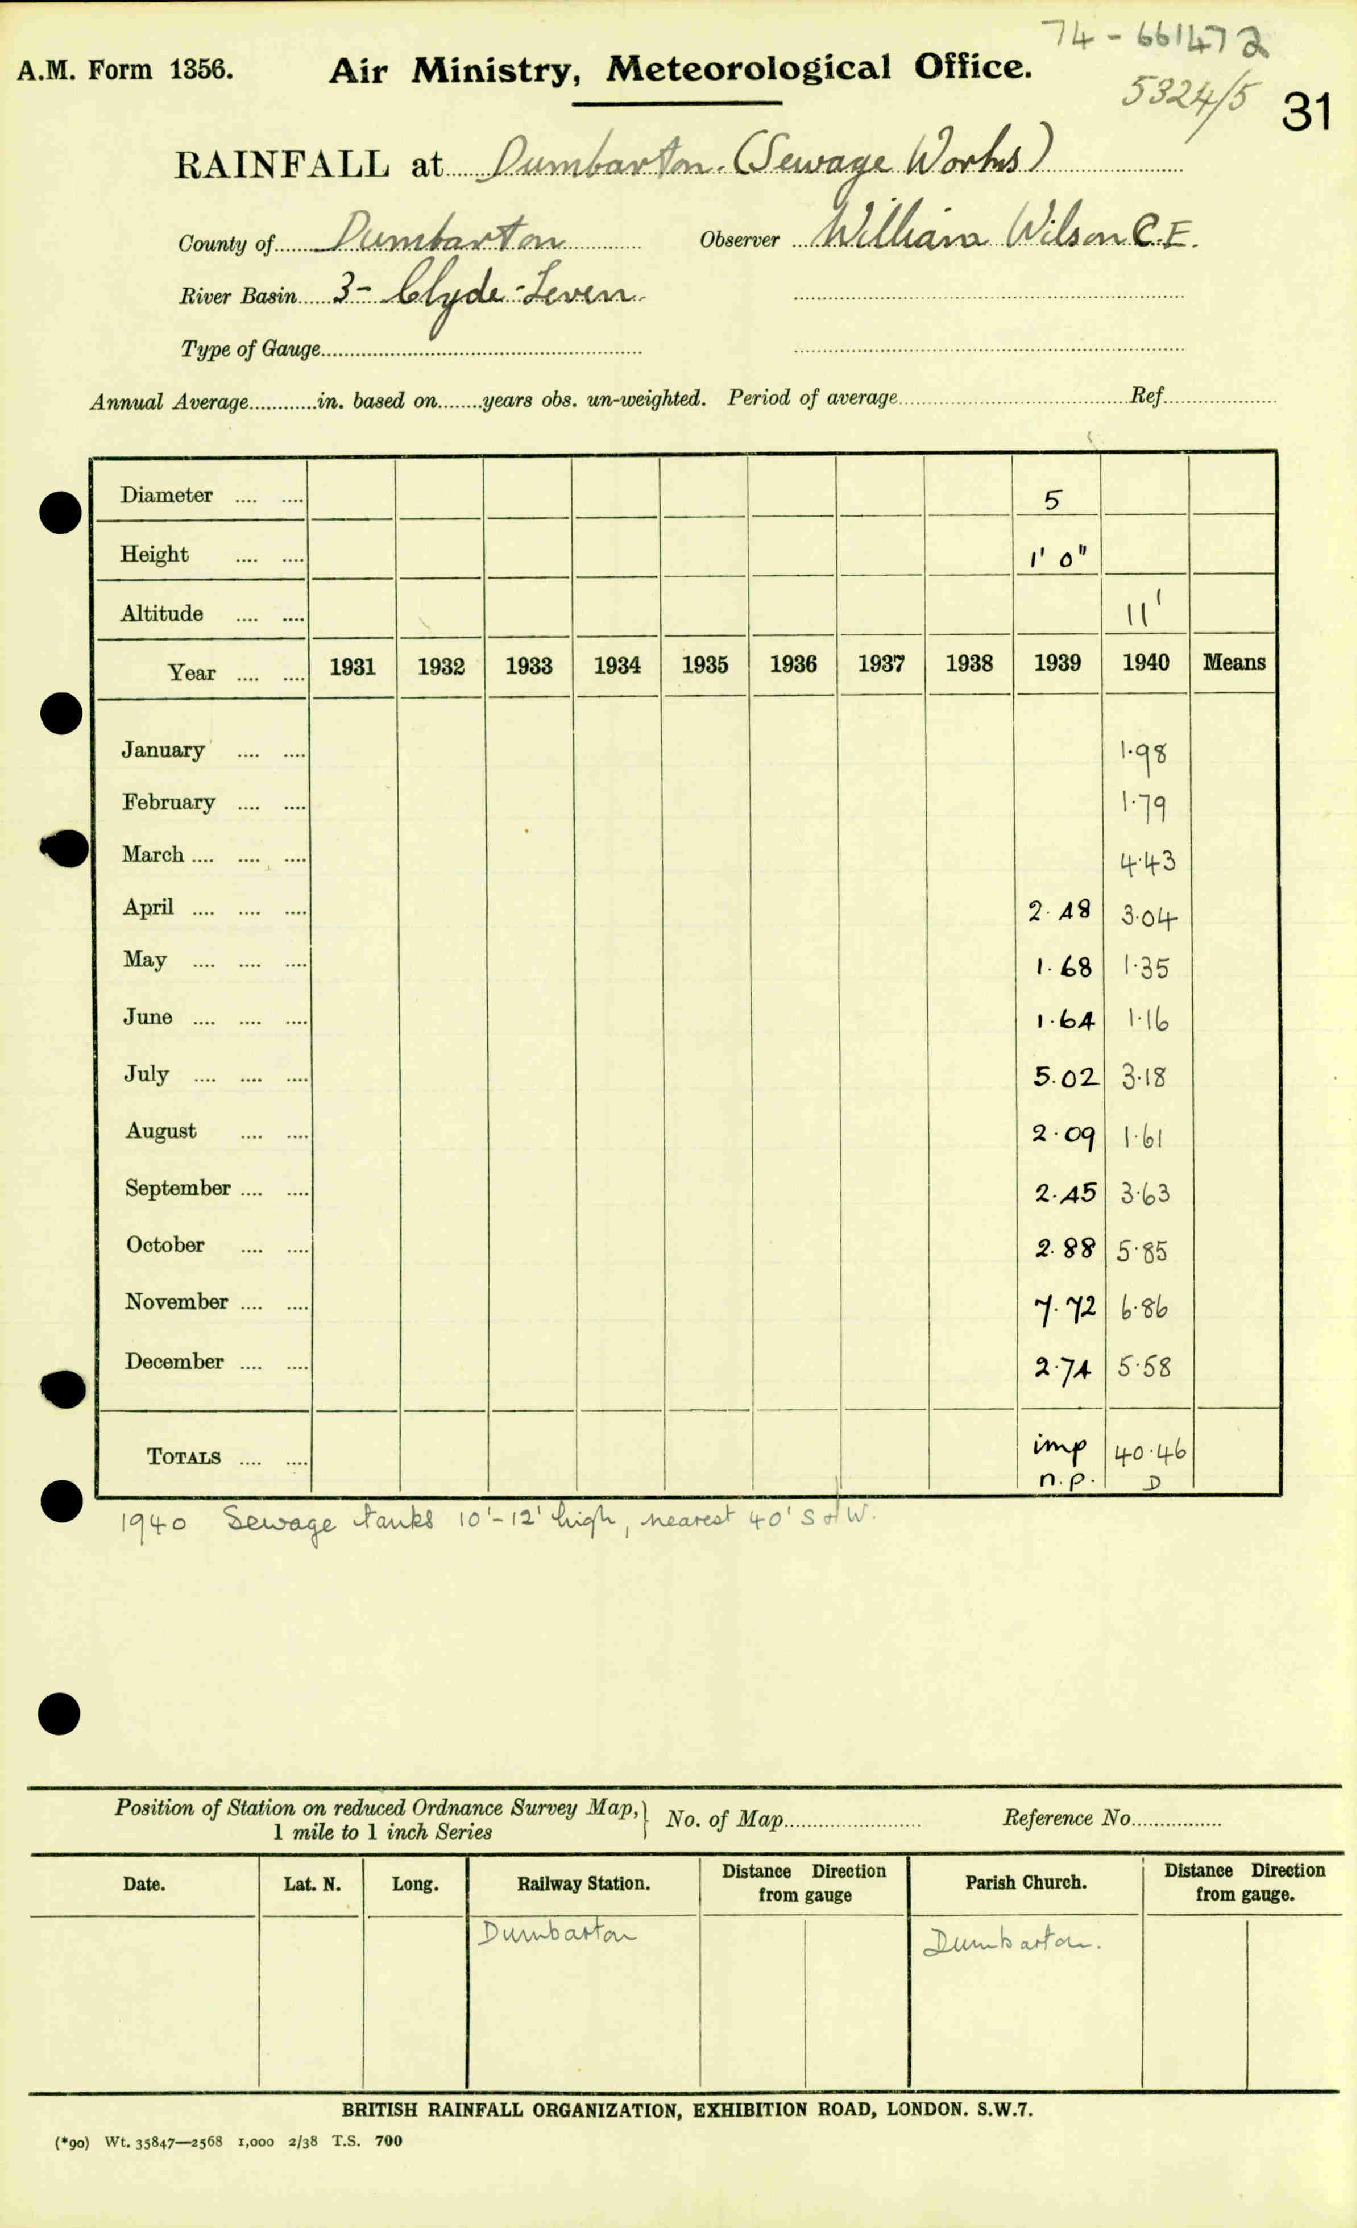 74 - 661472
A.M. Form 1356. Air Ministry, Meteorological Office.
5324/5 31
RAINFALL at Dumbarton. (Sewage Works)
County of Dumbarton Observer William Wilson C.E.
River Basin 3- Clyde-Leven
Type of Gauge
Annual Average in. based on years obs. un-weighted. Period of average Ref
Diameter 5
Height 1' 0"
Altitude 11'
Year 1931 1932 1933 1934 1935 1936 1937 1938 1939 1940 Means
January 1.98
February 1.79
March 4.43
April 2.48 3.04
May 1.68 1.35
June 1.64 1.16
July 5.02 3.18
August 2.09 1.61
September 2.45 3.63
October 2.88 5.85
November 7.72 6.86
December 2.74 5.58
TOTALS imp 40.46
n.p. D
1940 Sewage tanks 10'-12' high, nearest 40' S of W.
Position of Station on reduced Ordnance Survey Map, No. of Map Reference No
1 mile to 1 inch Series
Date. Lat. N. Long. Railway Station. Distance Direction from gauge Parish Church. Distance Direction from gauge.
Dumbarton Dumbarton.
BRITISH RAINFALL ORGANIZATION, EXHIBITION ROAD, LONDON. S.W.7.
(*90) Wt. 35847—2568 1,000 2/38 T.S. 700